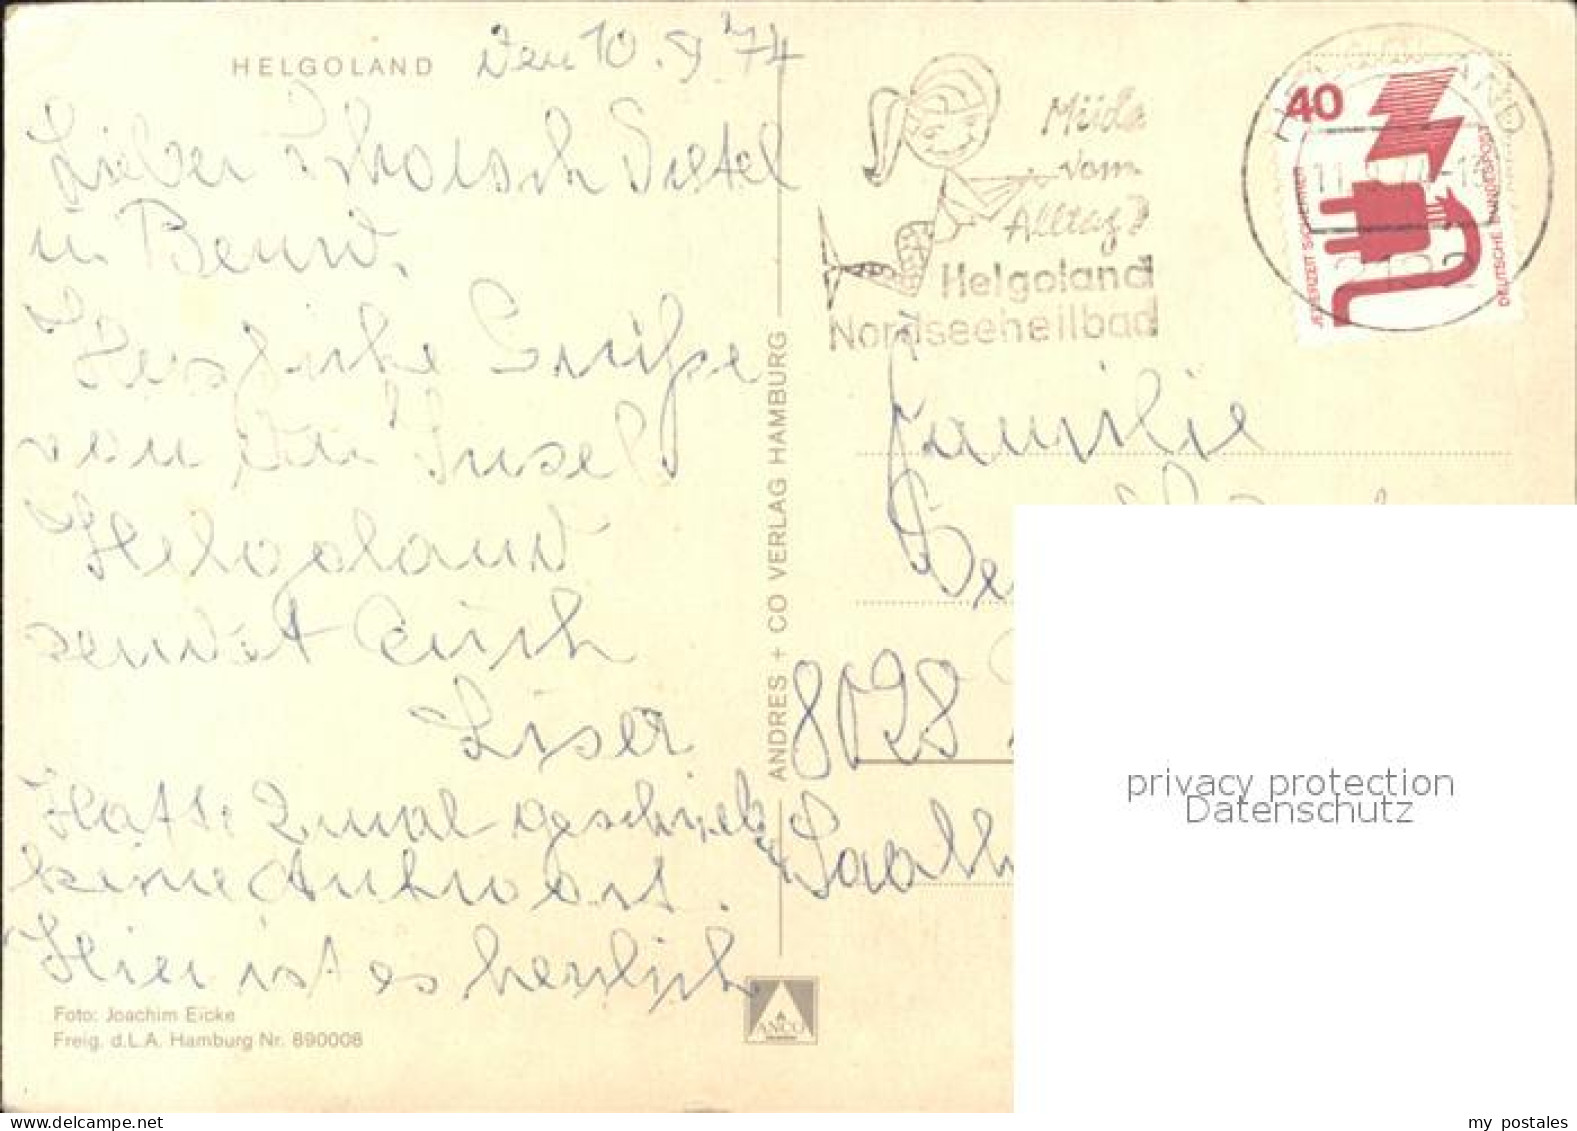 HELGOLAND
Den 10.9.74
Lieber
u. Bernd.
Herzliche Grüße
von der Insel
Helgoland
sendet Euch
Liser
Hatte 2 mal geschrieb.
keine Antwort.
Hier ist es herrlich
Foto: Joachim Eicke
Freig. d.L.A. Hamburg Nr. 890008
ANDRES + CO VERLAG HAMBURG
ANCO
Müde
vom
Alltag?
Helgoland
Nordseeheilbad
40
JEDERZEIT SICHERHEIT
DEUTSCHE BUNDESPOST
Familie
8028
privacy protection
Datenschutz
www.delcampe.net
my postales